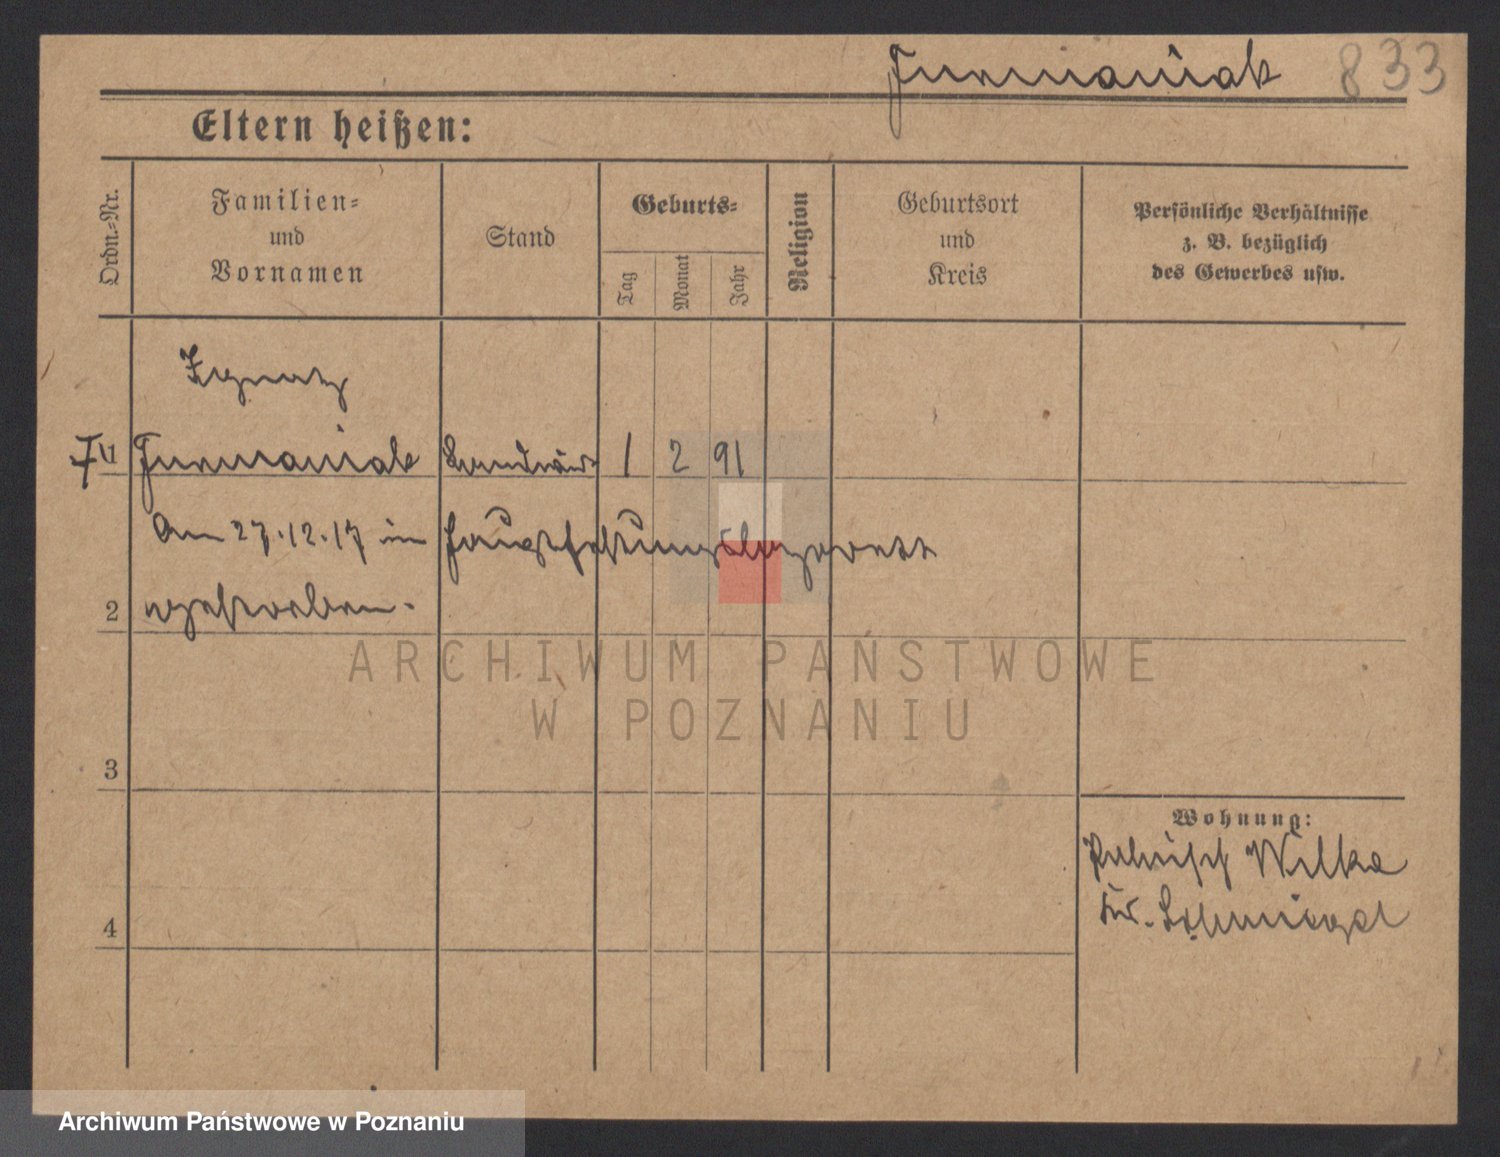 Furmaniak 833
Eltern heißen:
Ordn.-Nr.
Familien-
und
Vornamen
Stand
Geburts-
Tag
Monat
Jahr
Religion
Geburtsort
und
Kreis
Persönliche Verhältnisse
z. B. bezüglich
des Gewerbes usw.
Ignatz
1 Furmaniak Landwirt 1 2 91
Am 27.12.17 im Hauptfestungslazarett
2 gestorben.
3
4
Wohnung:
Polnisch Wilke
Kr. Schmiegel
ARCHIWUM PAŃSTWOWE
W POZNANIU
Archiwum Państwowe w Poznaniu